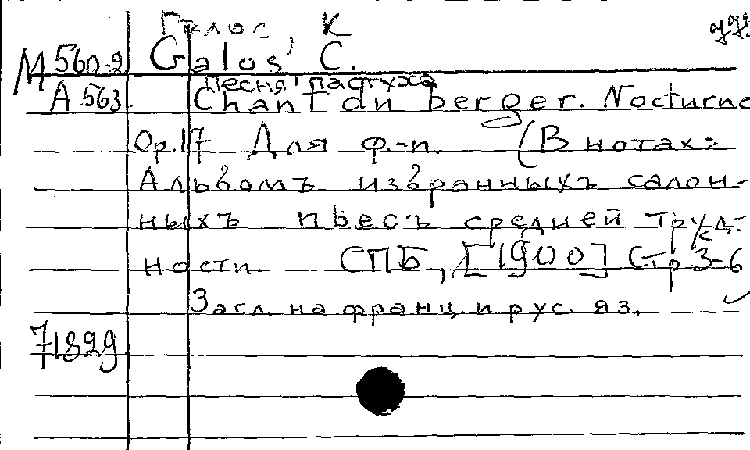 Галос, К
М 560-2 Galos, C.
Песня пастуха
А 563 Chant du berger. Nocturne
Op.17 Для ф.-п. (В нотах:
Альбомъ избранныхъ салон-
ныхъ пьесъ средней труд-
ности. СПБ, [1900] с Стр 3-6
Загл. на франц. и рус. яз.
71829